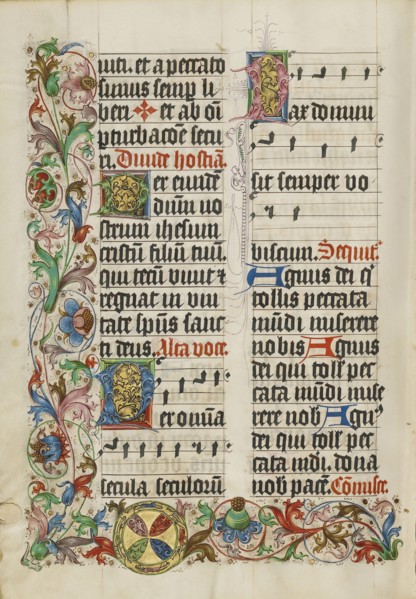 iuti. et a peccato
simus semp li
beri et ab oi
pturbacōe secu
ri. Diuide hostiā.
Per eunde
dnum no
strum ihesum
cristū filiū tuū.
qui tecū viuit ⁊
regnat in vni
tate spūs sanc
ti deus. Alta voce.
Per omnia
secula seculorū
Pax domini
sit semper vo
biscum. Sequit̄.
Agnus dei q̄
tollis peccata
mūdi miserere
nobis Agnus
dei qui toll' pec
cata mūdi mise
rere nob' Agn'
dei qui toll' pec
cata mūdi. dona
nob' pacē. Cōmisc.